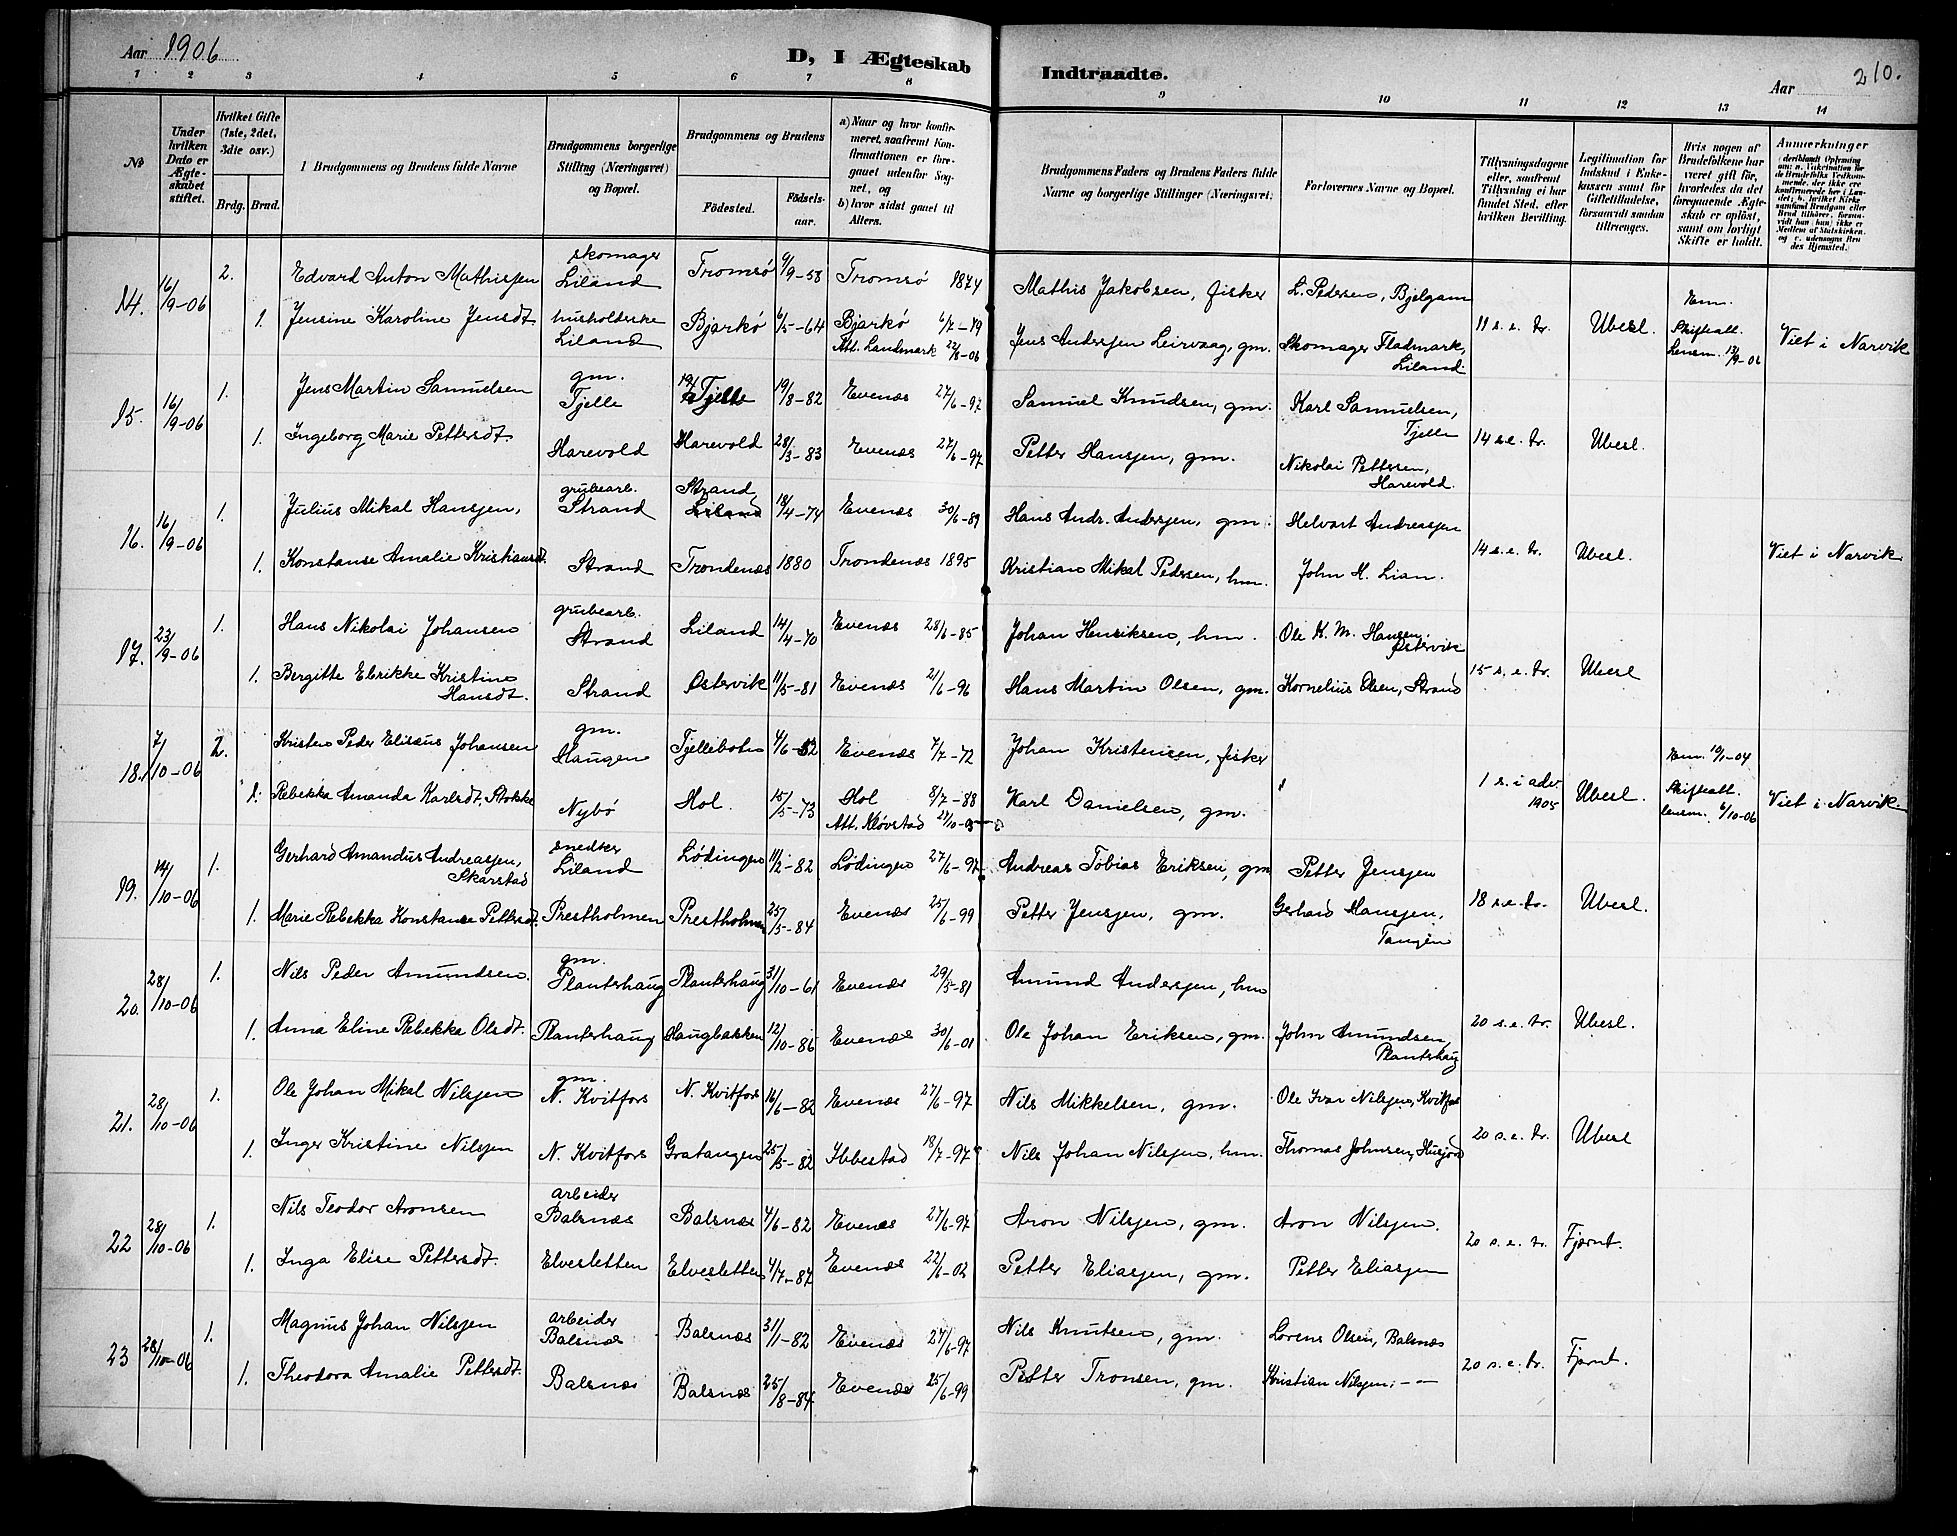 Aar 1906
D, I Ægteskab Indtraadte.
Aar 210.
1 2 3 4 5 6 7 8 9 10 11 12 13 14
No
Under hvilken Dato er Ægteskabet stiftet.
Hvilket Gifte (1ste, 2det, 3die osv.)
Brdg. Brud.
I Brudgommens og Brudens fulde Navne
Brudgommens borgerlige Stilling (Næringsvei) og Bopæl.
Brudgommens og Brudens
Fødested. Fødselsaar.
a) Naar og hvor konfirmeret, saafremt Konfirmationen er foregaaet udenfor Sognet, og
b) hvor sidst gaaet til Alters.
Brudgommens Faders og Brudens Faders fulde Navne og borgerlige Stillinger (Næringsvei)
Forlovernes Navne og Bopæl.
Tillysningsdagene eller, saafremt Tillysning ei har fundet Sted, efter hvilken Bevilling.
Legitimation for Indskud i Enkekassen samt for Giftetilladelse, forsaavidt saadan tiltrænges.
Hvis nogen af Brudefolkene har været gift før, hvorledes da det foregaaende Ægteskab er opløst, samt om lovligt Skifte er holdt.
Anmærkninger
14. 16/9-06 2. Edvard Anton Mathisjen skomager Liland Tromsø 9/9-58 Tromsø 1874 Mathis Jakobsen, fisker L. Pedersen, Bjelgam Enm.
1. Jensine Karoline Jensdt. husholderske Liland Bjarkö 6/5-64 Bjarkö 6/7-79 Att. Landmark 22/8-06 Jens Andersjen Leirvaag, gm. Skomager Fladmark, Liland. 11 s. e. tr. Ubesl. Skifteatt. Lensm. 13/9-06 Viet i Narvik
15. 16/9-06 1. Jens Martin Samuelsen gm. Tjelle Tjelle 19/8-82 Evenæs 27/6-97 Samuel Knudsen, gm. Karl Samuelsen, Tjelle
1. Ingeborg Marie Pettersdt Harevold Harevold 28/3-83 Evenæs 27/6-97 Petter Hansjen, gm. Nikolai Pettersen, Harevold. 14 s. e. tr. Ubesl.
16. 16/9-06 1. Julius Mikal Hansjen, grubearb. Strand Strand, Liland 18/4-74 Evenæs 30/6-89 Hans Andr. Andersjen, gm. Helvart Andreasjen
1. Konstanse Amalie Kristiansdt. Strand Trondenæs 1880 Trondenæs 1895 Kristian Mikal Pedersen, hm. John H. Lian. 14 s. e. tr. Ubesl. Viet i Narvik
17. 23/9-06 1. Hans Nikolai Johansen grubearb. Strand Liland 14/4-70 Evenæs 28/6-85 Johan Henriksen, hm. Ole K. M. Hansen, Østervik
1. Bergitte Elrikke Kristine Hansdt. Strand Østervik 11/5-81 Evenæs 21/6-96 Hans Martin Olsen, gm. Kornelius Olsen, Strand 15 s. e. tr. Ubesl
18. 7/10-06 2. Kristen Peder Elisæus Johansen gm. Haugen Tjellebotn 4/6-52 Evenæs 7/7-72 Johan Kristensen, fisker Enm. 10/1-04
1. Rebekka Amanda Karlsdt. Stokke Nybö Hol. 15/5-73 Hol 8/7-88 Att. Kløvstad Karl Danielsen, gm. 1 s. i adv. 1905 Ubesl. Skifteatt. lensm. 6/10-06 Viet i Narvik
19. 14/10-06 1. Gerhard Amandus Andreasjen, Skarstad snedker Liland Lødingen 11/2-82 Lødingen 27/6-97 Andreas Tobias Eriksen, gm Petter Jensjen
1. Marie Rebekka Konstanse Pettersdt. Prestholmen Prestholmen 25/5-84 Evenæs 25/6-99 Petter Jensjen, gm. Gerhard Hansjen, Tangen 18 s. e. tr. Ubesl.
20. 28/10-06 1. Nils Peder Amundsen. gm. Planterhaug Planterhaug 31/10-61 Evenæs 29/5-81 Amund Andersjen, hm
1. Anna Eline Rebekke Olsdt. Planterhaug Haugbakken 12/10-86 Evenæs 30/6-01 Ole Johan Eriksen, gm. John Amundsen, Planterhaug 20 s. e. tr. Ubesl.
21. 28/10-06 1. Ole Johan Mikal Nilsjen gm. N. Kvitfors N. Kvitfors 16/6-82 Evenæs 27/6-97 Nils Mikkelsen, gm. Ole Ivar Nilsjen, Kvitfors
1. Inger Kristine Nilsjen N. Kvitfors Gratangen 25/5-82 Ibbestad 18/7-97 Nils Johan Nilsjen, hm. Thomas Johnsen, Husjord 20 s. e. tr. Ubesl
22 28/10-06 1. Nils Teodor Aronsen arbeider Balsnæs Balsnæs 4/6-82 Evenæs 27/6-97 Aron Nilsjen, gm. Aron Nilsjen.
1. Inga Elise Pettersdt. Elvesletten Elvesletten 4/7-87 Evenæs 22/6-02 Petter Eliasjen, gm. Petter Eliasjen 20 s. e. tr Fjernt.
23 28/10-06 1. Magnus Johan Nilsjen arbeider Balsnæs Balsnæs 31/1-82 Evenæs 27/6-97 Nils Knutsen, gm. Lorens Olsen, Balsnæs
1. Theodora Amalie Pettersdt. Balsnæs Balsnæs 25/8-84 Evenæs 25/6-99 Petter Tronsen, gm. Kristian Nilsjen, - - 20 s. e. tr. Fjernt.